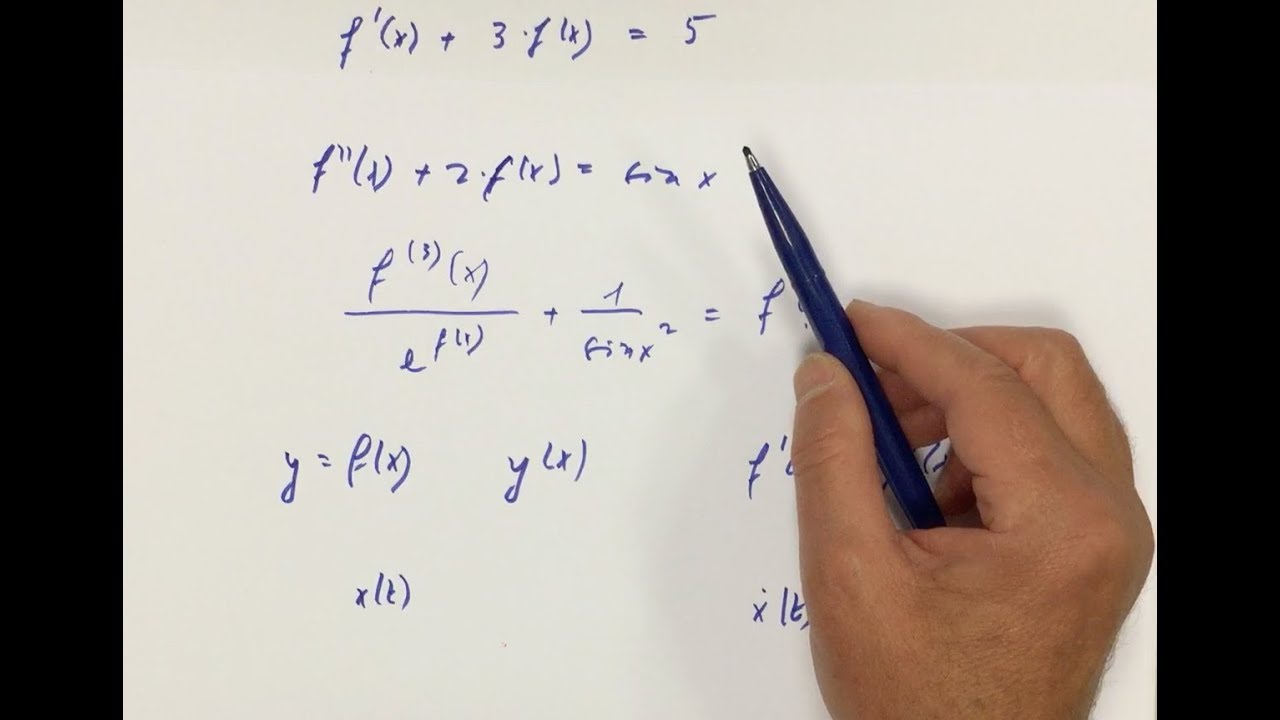 f'(x) + 3·f(x) = 5
f''(x) + 2·f(x) = sin x
f⁽³⁾(x) / e^f(x) + 1 / sin x² = f
y = f(x) y(x) f'
x(t) ẋ(t)